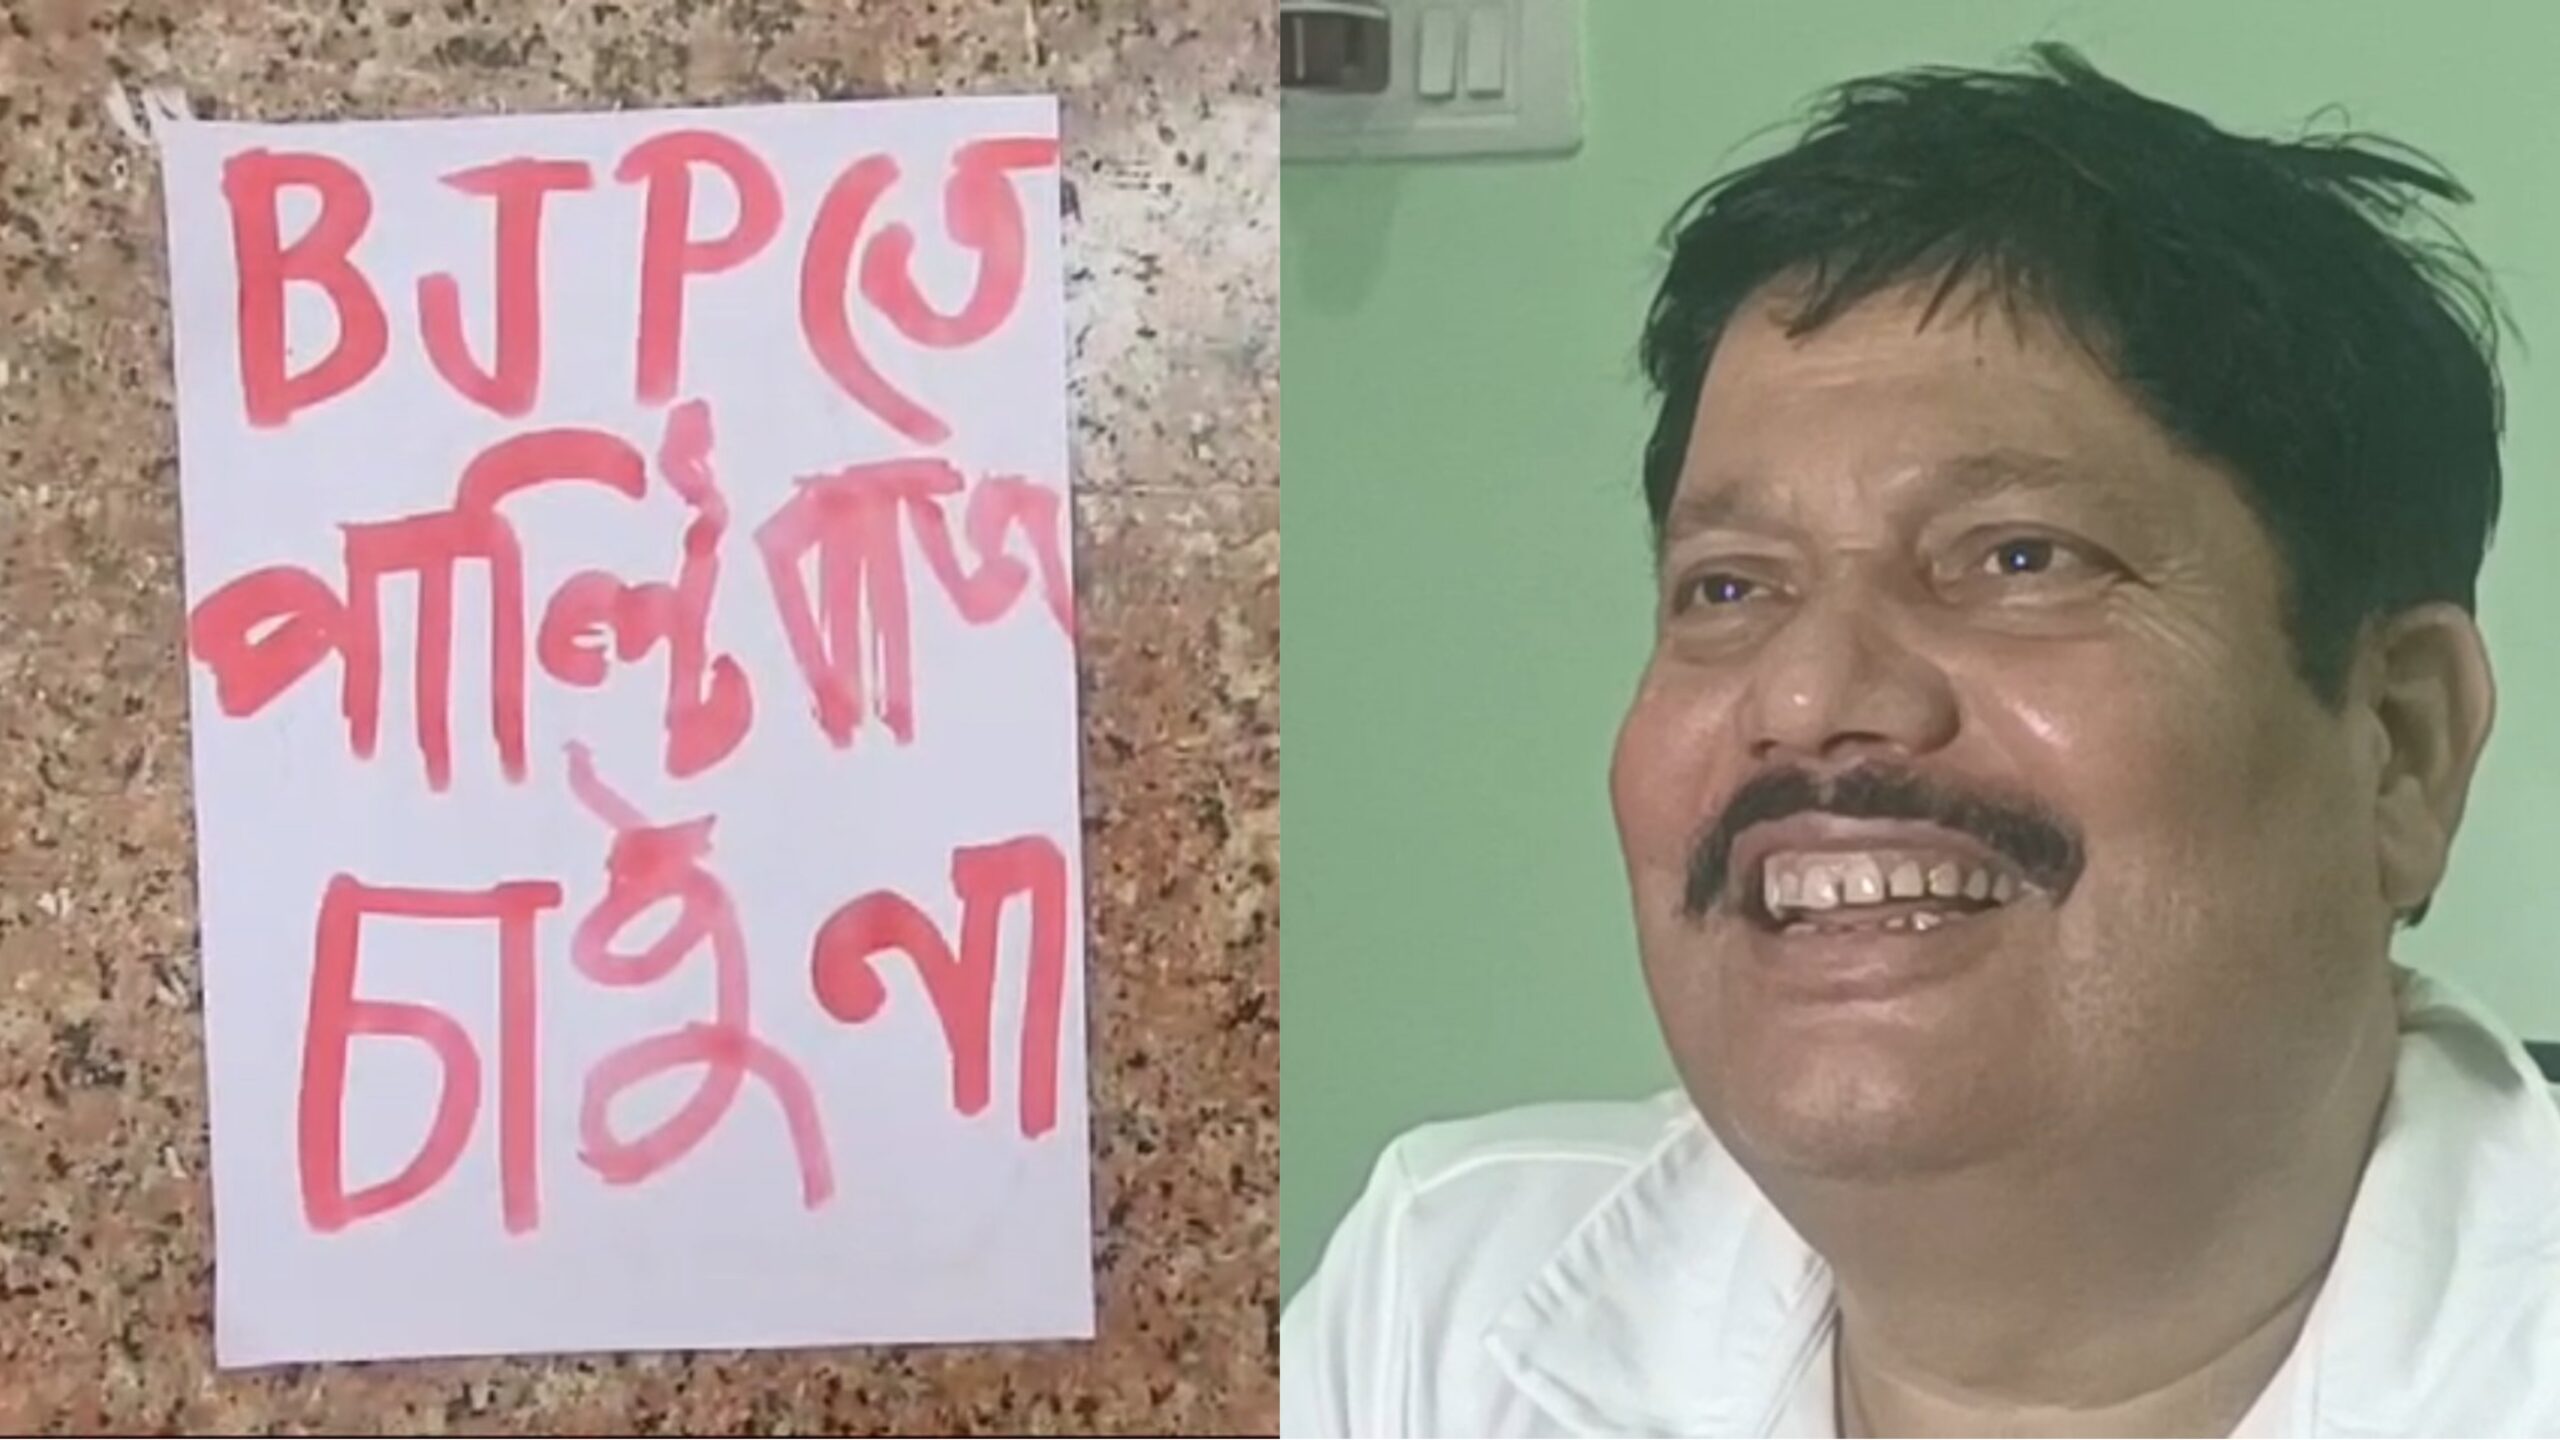 BJPতে
পাল্টুবাজ
চাই না